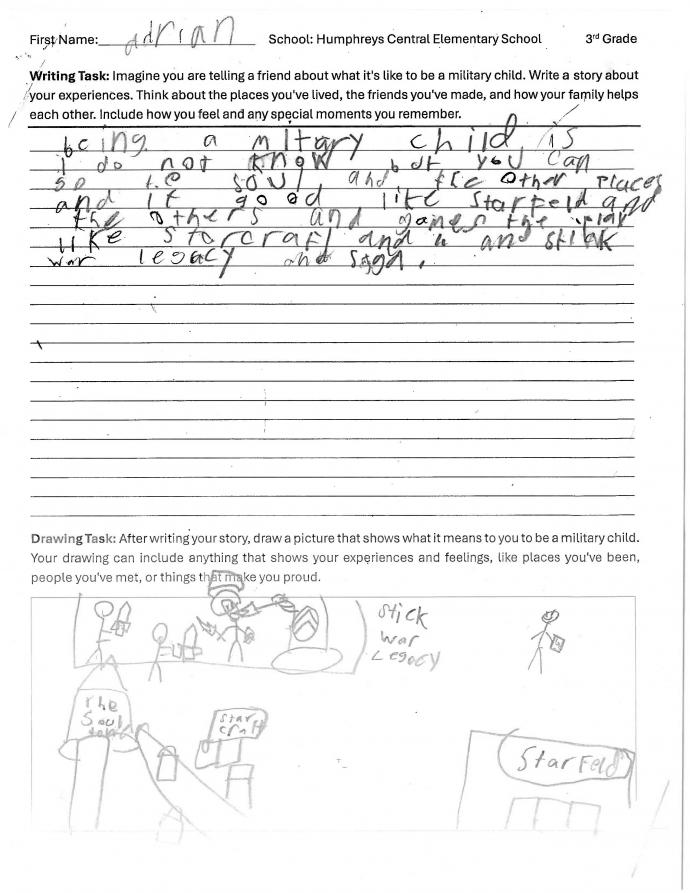 First Name: adrian School: Humphreys Central Elementary School 3rd Grade
Writing Task: Imagine you are telling a friend about what it's like to be a military child. Write a story about
your experiences. Think about the places you've lived, the friends you've made, and how your family helps
each other. Include how you feel and any special moments you remember.
being a miltary child is
I do not know but you can
so to soul and other places
and it good like starfeld and
the others and games the
like starcraft and and stick
war legacy and saga.
Drawing Task: After writing your story, draw a picture that shows what it means to you to be a military child.
Your drawing can include anything that shows your experiences and feelings, like places you've been,
people you've met, or things that make you proud.
stick
war
Legacy
the
Soul
star
craft
StarFeld